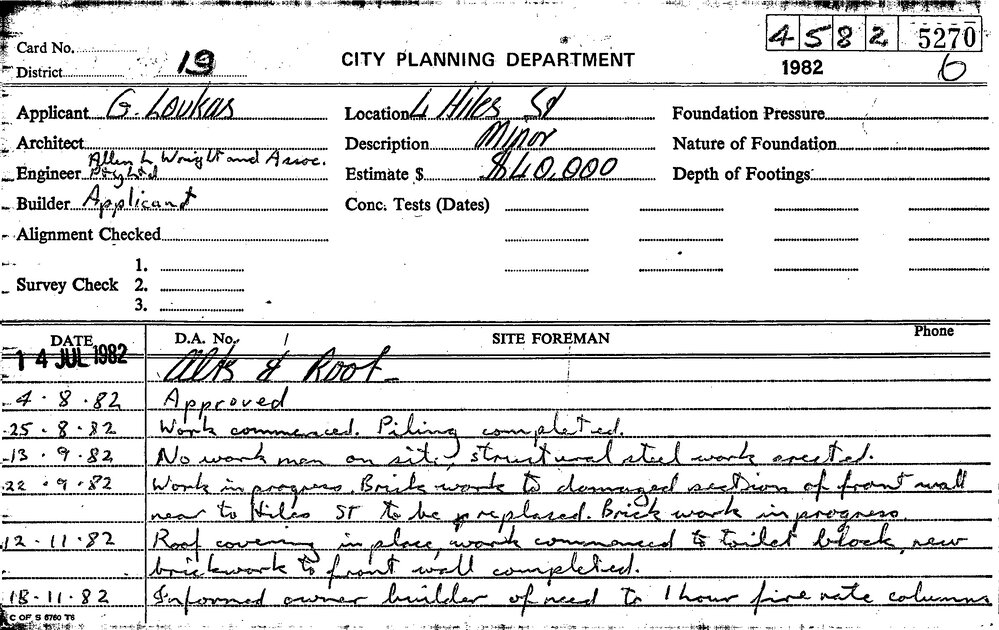 4582 5270
Card No.
District 19
CITY PLANNING DEPARTMENT
1982
6
Applicant G. Loukas
Location 4 Hiles St
Foundation Pressure
Architect
Description Minor
Nature of Foundation
Engineer Allen L Wright and Assoc.
Pty Ltd
Estimate $ $40,000
Depth of Footings
Builder Applicant
Conc. Tests (Dates)
Alignment Checked
Survey Check 1.
2.
3.
DATE D.A. No. SITE FOREMAN Phone
14 JUL 1982 Alts & Roof
4.8.82 Approved
25.8.82 Work commenced. Piling completed.
13.9.82 No work men on site, structural steel work erected.
22.9.82 Work in progress. Brick work to damaged section of front wall
near to Hiles ST to be replased. Brick work in progress.
12.11.82 Roof covering in place, work commenced to toilet block, new
brickwork to front wall completed.
18.11.82 Informed owner builder of need to 1 hour fire rate columns
C OF S 6760 T6